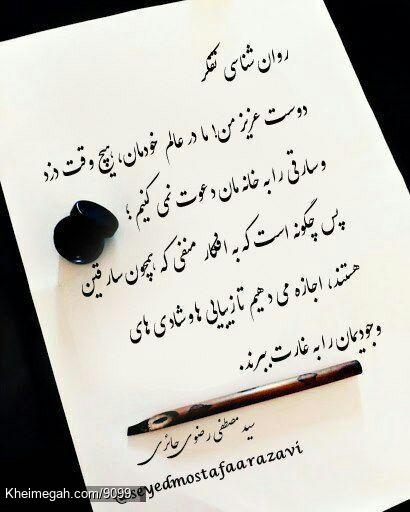 روان شناسی تفکر
دوست عزیز من! ما در عالم خودمان، هیچ وقت دزد
و سارقی را به خانه مان دعوت نمی کنیم؛
پس چگونه است که به افکار منفی که همچون سارقین
هستند، اجازه می دهیم تا زیبایی ها و شادی های
وجودیمان را به غارت ببرند.
سید مصطفی رضوی حائری
@seyedmostafaarazavi
Kheimegah.com/9099